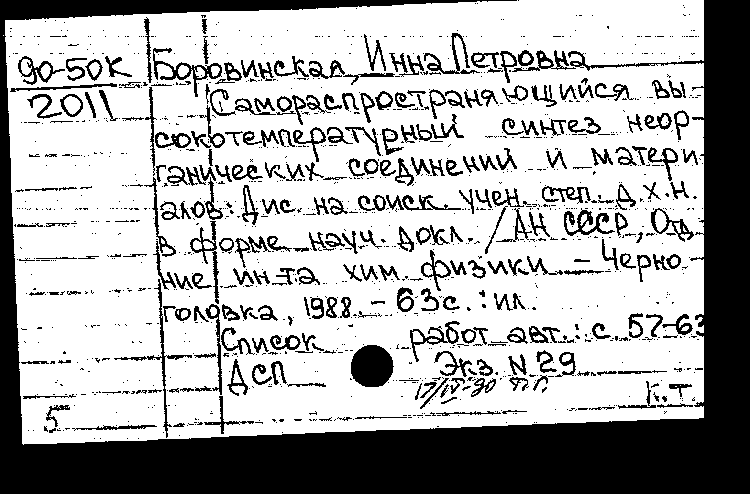 90-50к Боровинская, Инна Петровна
2011 Самораспространяющийся вы-
сокотемпературный синтез неор-
ганических соединений и матери
алов: Дис. на соиск. учен. степ. д.х.н.
в форме науч. докл. / АН СССР, Отд
ние ин-та хим. физики - Черно-
головка, 1988. - 63с. : ил.
Список работ авт.: с. 57-63
ДСП Экз. N 29
17/IV-90
5 К.Т.